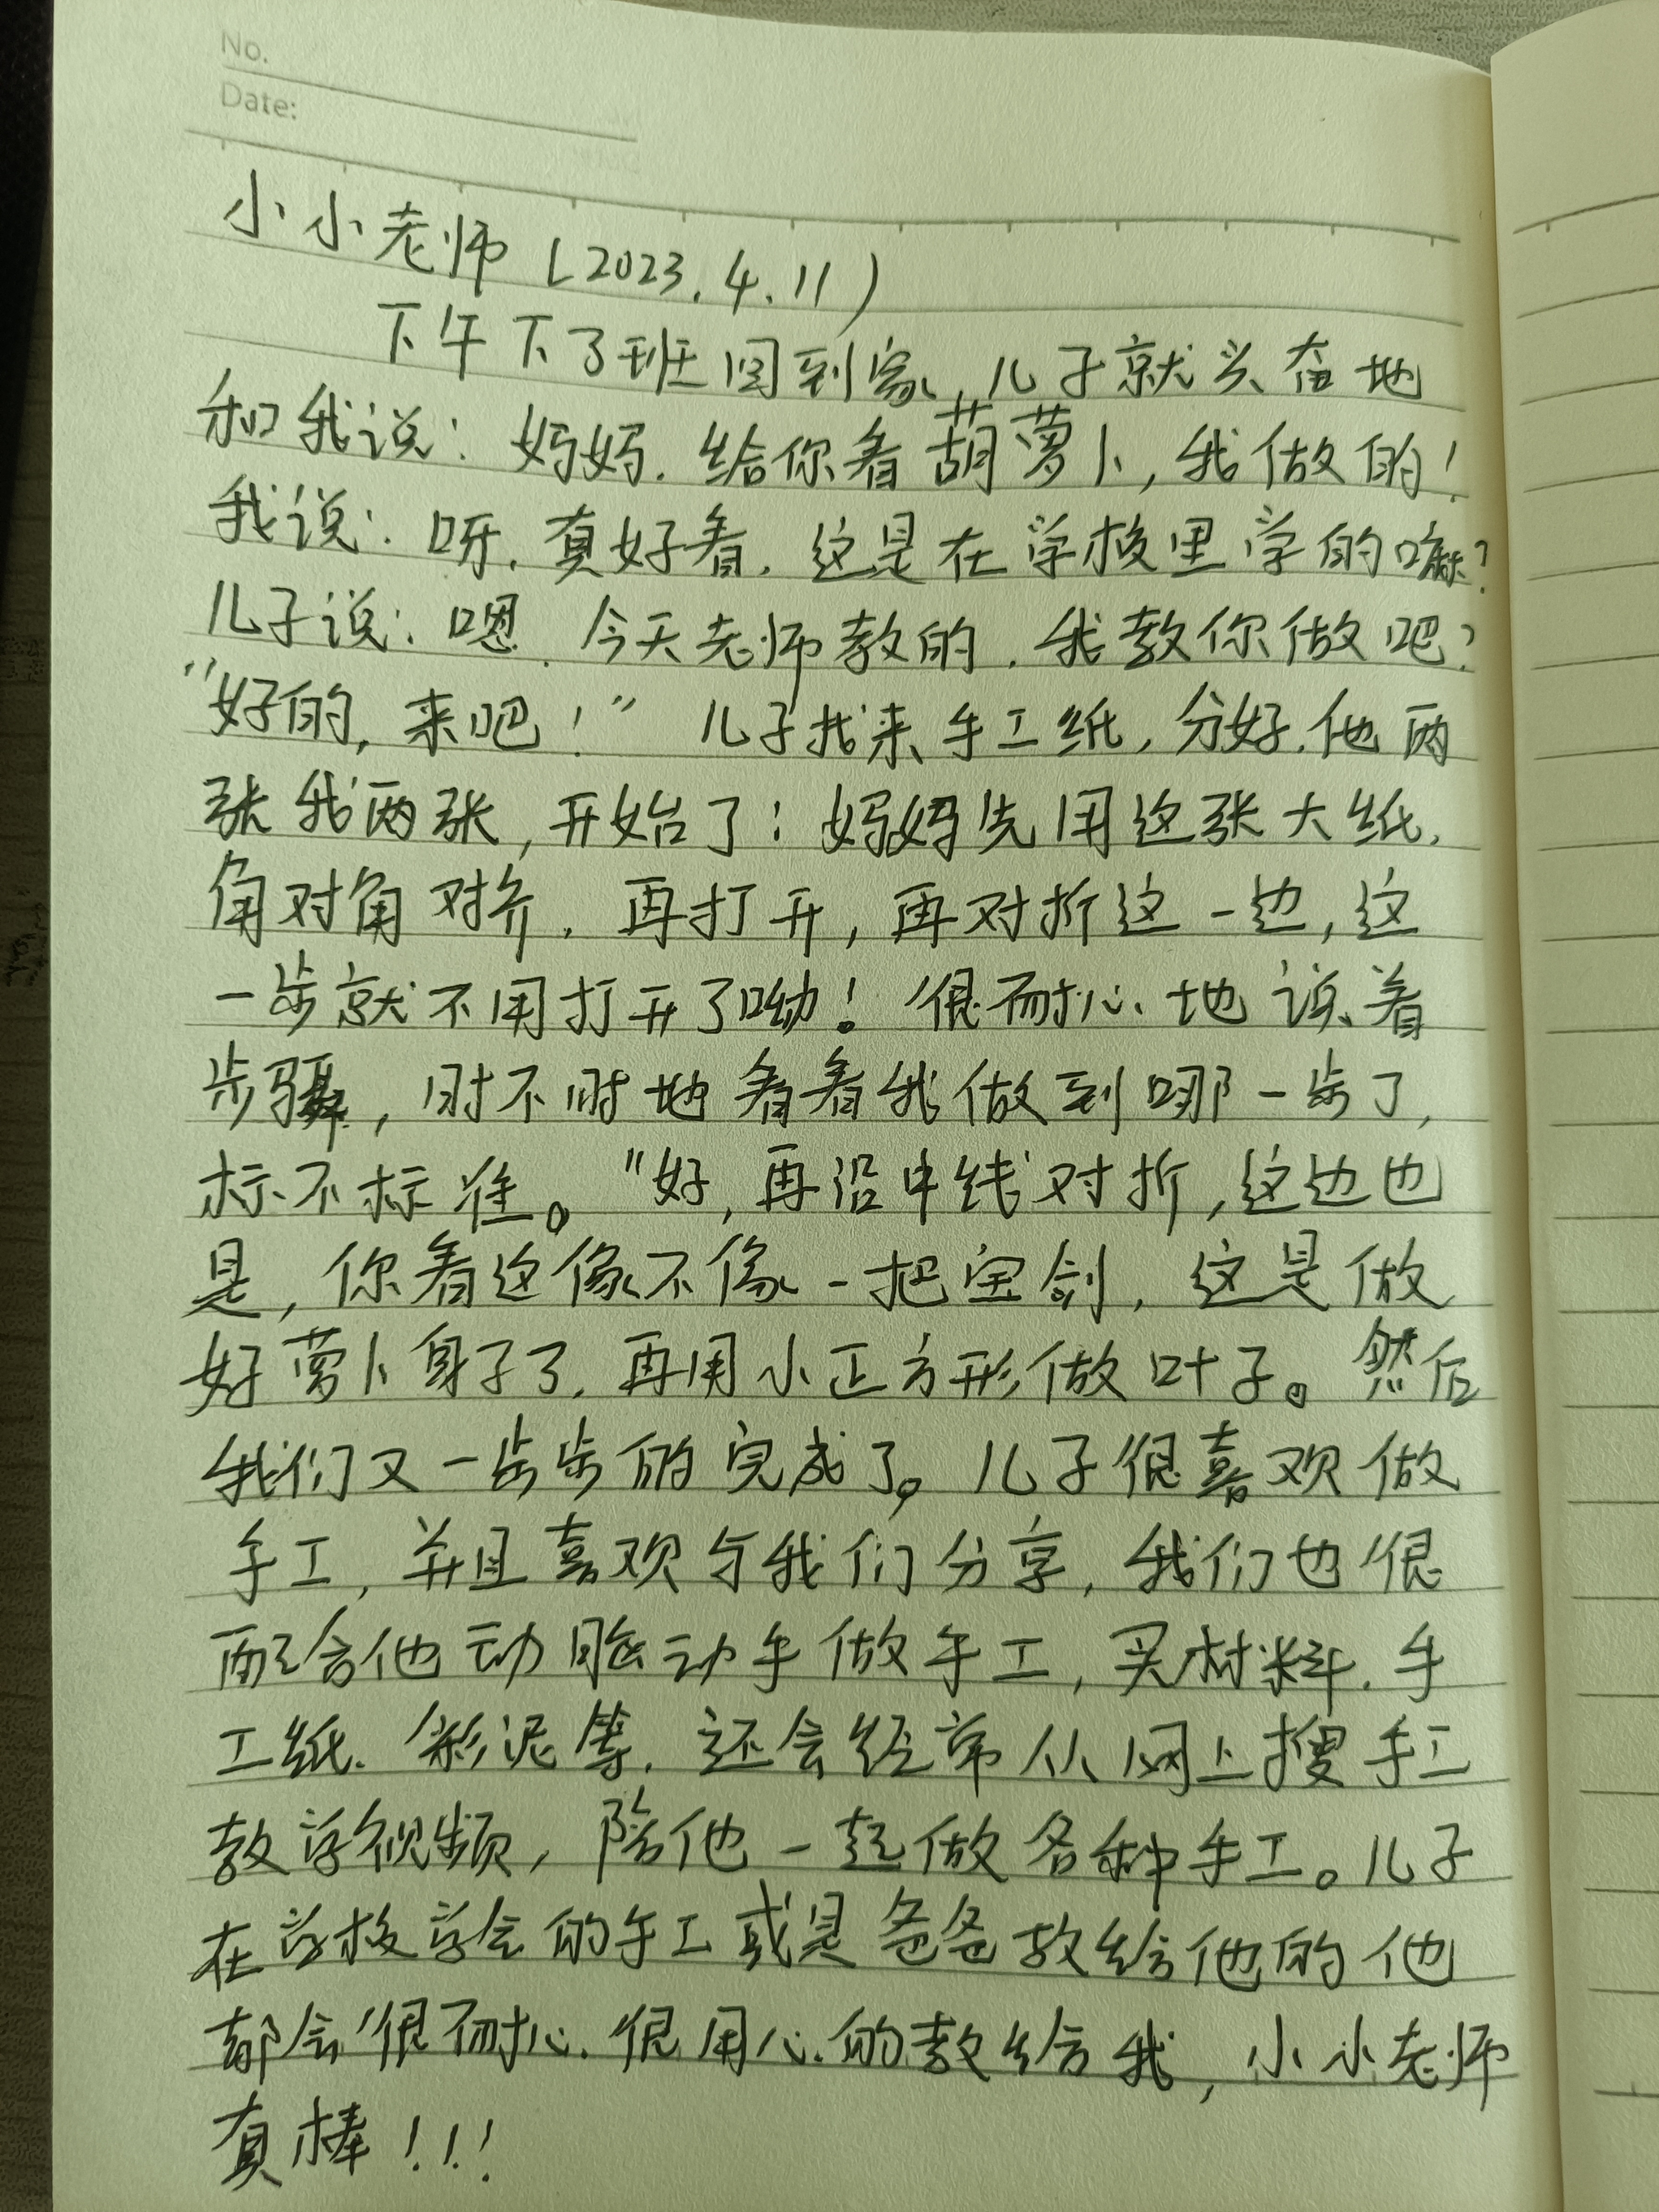 No.
Date:
小小老师(2023.4.11)
下午下了班回到家,儿子就兴奋地
和我说:妈妈.给你看葫萝卜,我做的!
我说:呀.真好看.这是在学校里学的嘛?
儿子说:嗯.今天老师教的.我教你做吧?
"好的,来吧!"儿子找来手工纸,分好.他两
张我两张,开始了:妈妈先用这张大纸.
角对角对齐.再打开,再对折这一边,这
一步就不用打开了呦!很耐心地说着
步骤,时不时地看看我做到哪一步了,
标不标准。"好,再沿中线对折,这边也
是,你看这像不像一把宝剑,这是做
好萝卜身子了,再用小正方形做叶子。然后
我们又一步步的完成了。儿子很喜欢做
手工,并且喜欢与我们分享,我们也很
配合他动脑动手做手工,买材料.手
工纸.彩泥等.还会经常从网上搜手工
教学视频,陪他一起做各种手工。儿子
在学校学会的手工或是爸爸教给他的他
都会很耐心.很用心的教给我,小小老师
真棒!!!